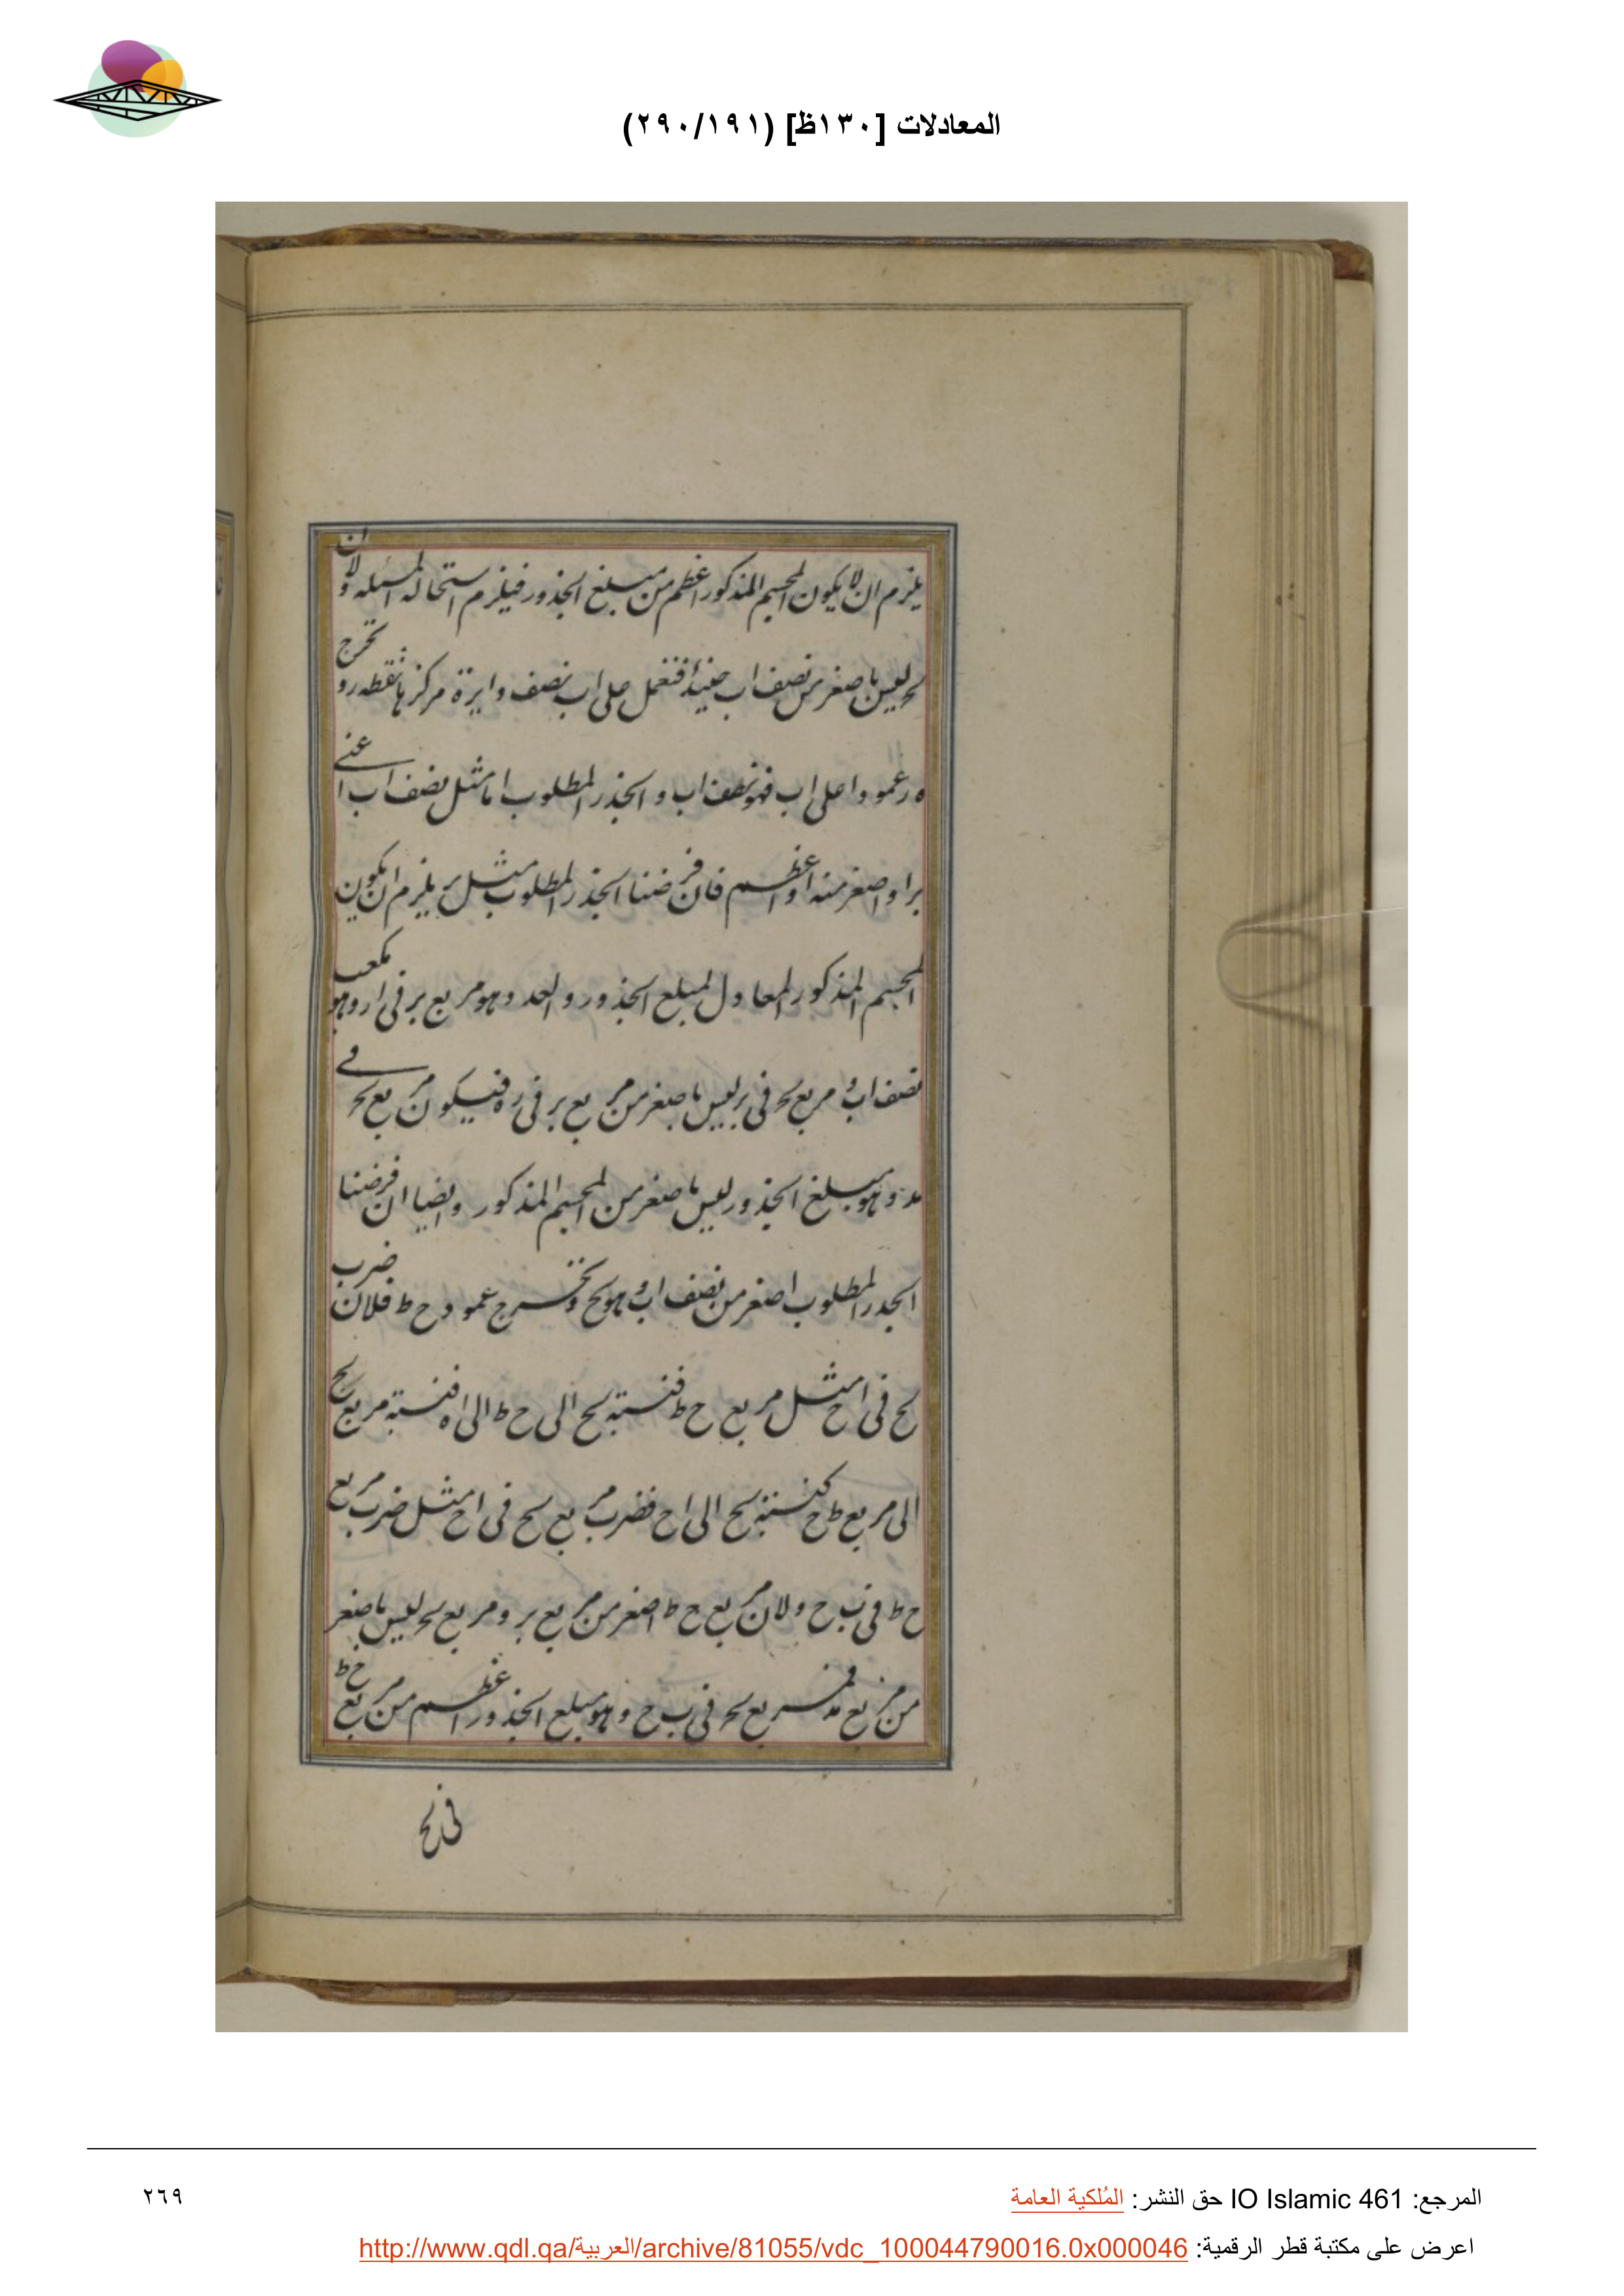 المعادلات [١٣٠ظ] (٢٩٠/١٩١)
يلزم ان لا يكون المجسم المذكور اعظم من مبلغ الجذور فيلزم استحالة المسئله ولان
لح ليس باصغر من نصف اب حينئذ فنعمل على اب نصف دايرة مركزها نقطه ر و تخرج
ه ر عمودا على اب فهو نصف اب والجذر المطلوب اما مثل نصف اب اعني
بر او اصغر منه او اعظم فان فرضنا الجذر المطلوب مثل بر يلزم ان يكون
المجسم المذكور المعادل لمبلغ الجذور والعدد وهو مربع بر في ار وهو مكعب
نصف اب و مربع لح في بر ليس باصغر من مربع بر في ره فيكون مربع لح في
مد وهو مبلغ الجذور ليس باصغر من المجسم المذكور وايضا ان فرضنا
الجدر المطلوب اصغر من نصف اب وهو لح و تخرج عمود ح ط فلان ضرب
لح في اح مثل مربع ح ط فنسبة لح الى ح ط الى اه فنسبة مربع لح
الى مربع ط ح كنسبة لح الى اح فضرب مربع لح في اح مثل ضرب مربع
ح ط في ب ح ولان مربع ح ط اصغر من مربع بر و مربع لح ليس باصغر
من مربع مد فمربع لح في ب ح وهو مبلغ الجذور اعظم من مربع ح ط
في لح
المرجع: IO Islamic 461 حق النشر: المُلكية العامة
٢٦٩
اعرض على مكتبة قطر الرقمية: http://www.qdl.qa/العربية/archive/81055/vdc_100044790016.0x000046